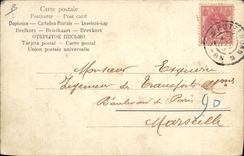 Carte postale
Postkarte — Post card
Dopisnice — Cartolina Postale — Levelező-Lap
Brefkort — Briefkaart — Brevkort
ОТКРЫТОЕ ПИСЬМО
Tarjeta postal — Carta postal
Union postale universelle
Monsieur
Ingenieur des Transports
Boulevard de Paris 90
Marseille